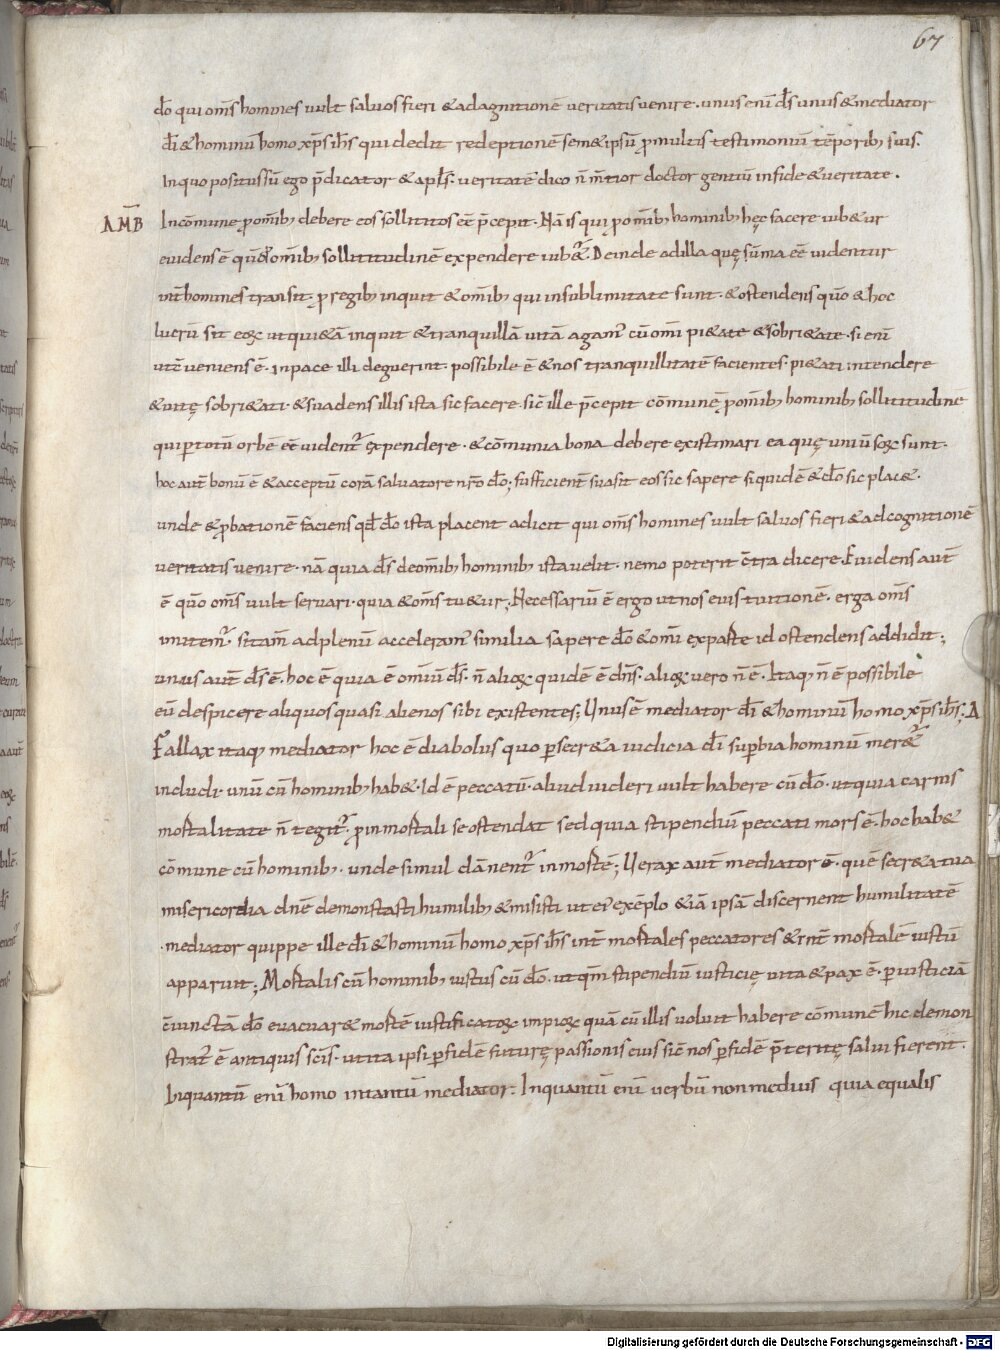 67
do̅ qui om̅s homines uult saluos fieri & ad agnitione̅ ueritatis uenire · unus eni̅ d̅s unus & mediator
d̅i & hominu̅ homo xp̅s ih̅s qui dedit redeptione̅ sem&ipsu̅ ꝓ multis testimoniu̅ te̅porib; suis.
In quo positus su̅ ego p̅dicator & apl̅s · ueritate̅ dico n̅ m̅tior doctor gentiu̅ in fide & ueritate .
AM̅B In co̅mune ꝓ om̅ib; debere eos sollititos e̅e̅ p̅cepit · Na̅ is qui ꝓ om̅ib; hominib; hęc facere iub&ur
euidens e̅ qu̅o om̅ib; sollititudine̅ expendere iub&̅ . Deinde ad illa quę su̅ma e̅e̅ uidentur
int̅ homines transit · ꝓ regib; inquit & om̅ib; qui in sublimitate sunt · & ostendens qu̅o & hoc
lucru̅ sit eoꝝ ut qui&a̅ inquit & tranquilla̅ uita̅ agam̅ cu̅ om̅i pi&ate & sobri&ate · si eni̅
ut̅ ueniens e̅ · in pace illi deguerint · possibile e̅ & nos tranquillitate̅ facientes · pi&ati intendere
& uitę sobri&ati · & suadens illis ista sic facere · sic̅ ille p̅cepit co̅mune̅ ꝓ om̅ib; hominib; sollititudine̅
qui ꝑ totu̅ orbe̅ e̅e̅ uident̅ expendere · & co̅munia bona debere existimari ea quę uniu̅ſcꝝ sunt ·
hoc aut̅ bonu̅ e̅ & acceptu̅ cora̅ saluatore nr̅o do̅ ; sufficient̅ suasit eos sic sapere siquide̅ & do̅ sic plac& ·
unde & ꝓbatione̅ faciens qd̅ do̅ ista placent adicit qui om̅s homines uult saluos fieri & ad cognitione̅
ueritatis uenire · na̅ quia d̅s de om̅ib; hominib; ista uelit · nemo poterit c̅tra dicere · Euidens aut̅
e̅ qu̅o om̅s uult seruari · quia & om̅s tu&ur ; Necessariu̅ e̅ ergo ut nos eius tuitione̅ · erga om̅s
imitem̅ · si tam̅ ad plenu̅ acceleram̅ similia sapere do̅ & om̅i ex parte id ostendens addidit ;
unus aut̅ d̅s e̅ · hoc e̅ quia e̅ om̅iu̅ d̅s · n̅ alioꝝ quide̅ e̅ dn̅s · alioꝝ uero n̅ e̅ · Itaq; n̅ e̅ possibile
eu̅ despicere aliquos quasi alienos sibi existentes ; Unus e̅ mediator d̅i & hominu̅ homo xp̅s ih̅s ; A
Fallax itaq; mediator hoc e̅ diabolus quo ꝑ secr&a iudicia d̅i suꝑbia hominu̅ mer&̅
includi · unu̅ cu̅ hominib; hab& · Id e̅ peccatu̅ · aliud uideri uult habere cu̅ do̅ · ut quia carnis
mortalitate n̅ tegit̅ · ꝓ inmortali se ostendat sed quia stipendiu̅ peccati mors e̅ · hoc hab&
co̅mune cu̅ hominib; · unde simul da̅nent̅ in morte̅ ; Uerax aut̅ mediator e̅ · que̅ secr&a tua
misericordia dn̅e demonstrasti humilib; & misisti ut ei̅ exe̅plo & ia̅ ipsa̅ discernent humilitate̅
· mediator quippe ille d̅i & hominu̅ homo xp̅s ih̅s int̅ mortales peccatores & int̅ mortale̅ iustu̅
apparuit ; Mortalis cu̅ hominib; iustus cu̅ do̅ · ut qm̅ stipendiu̅ iusticię uita & pax e̅ · ꝑ iusticia̅
c̅iuncta̅ do̅ euacuar& morte̅ iustificatoꝝ impioꝝ qua̅ cu̅ illis uoluit habere co̅mune̅ hic demon
strat̅ e̅ antiquis sc̅is · ut ita ipsi ꝑ fide̅ futurę passionis eius sic̅ nos ꝑ fide̅ p̅teritę salui fierent ·
Inquantu̅ eni̅ homo intantu̅ mediator · Inquantu̅ eni̅ uerbu̅ non medius quia equalis
Digitalisierung gefördert durch die Deutsche Forschungsgemeinschaft - DFG